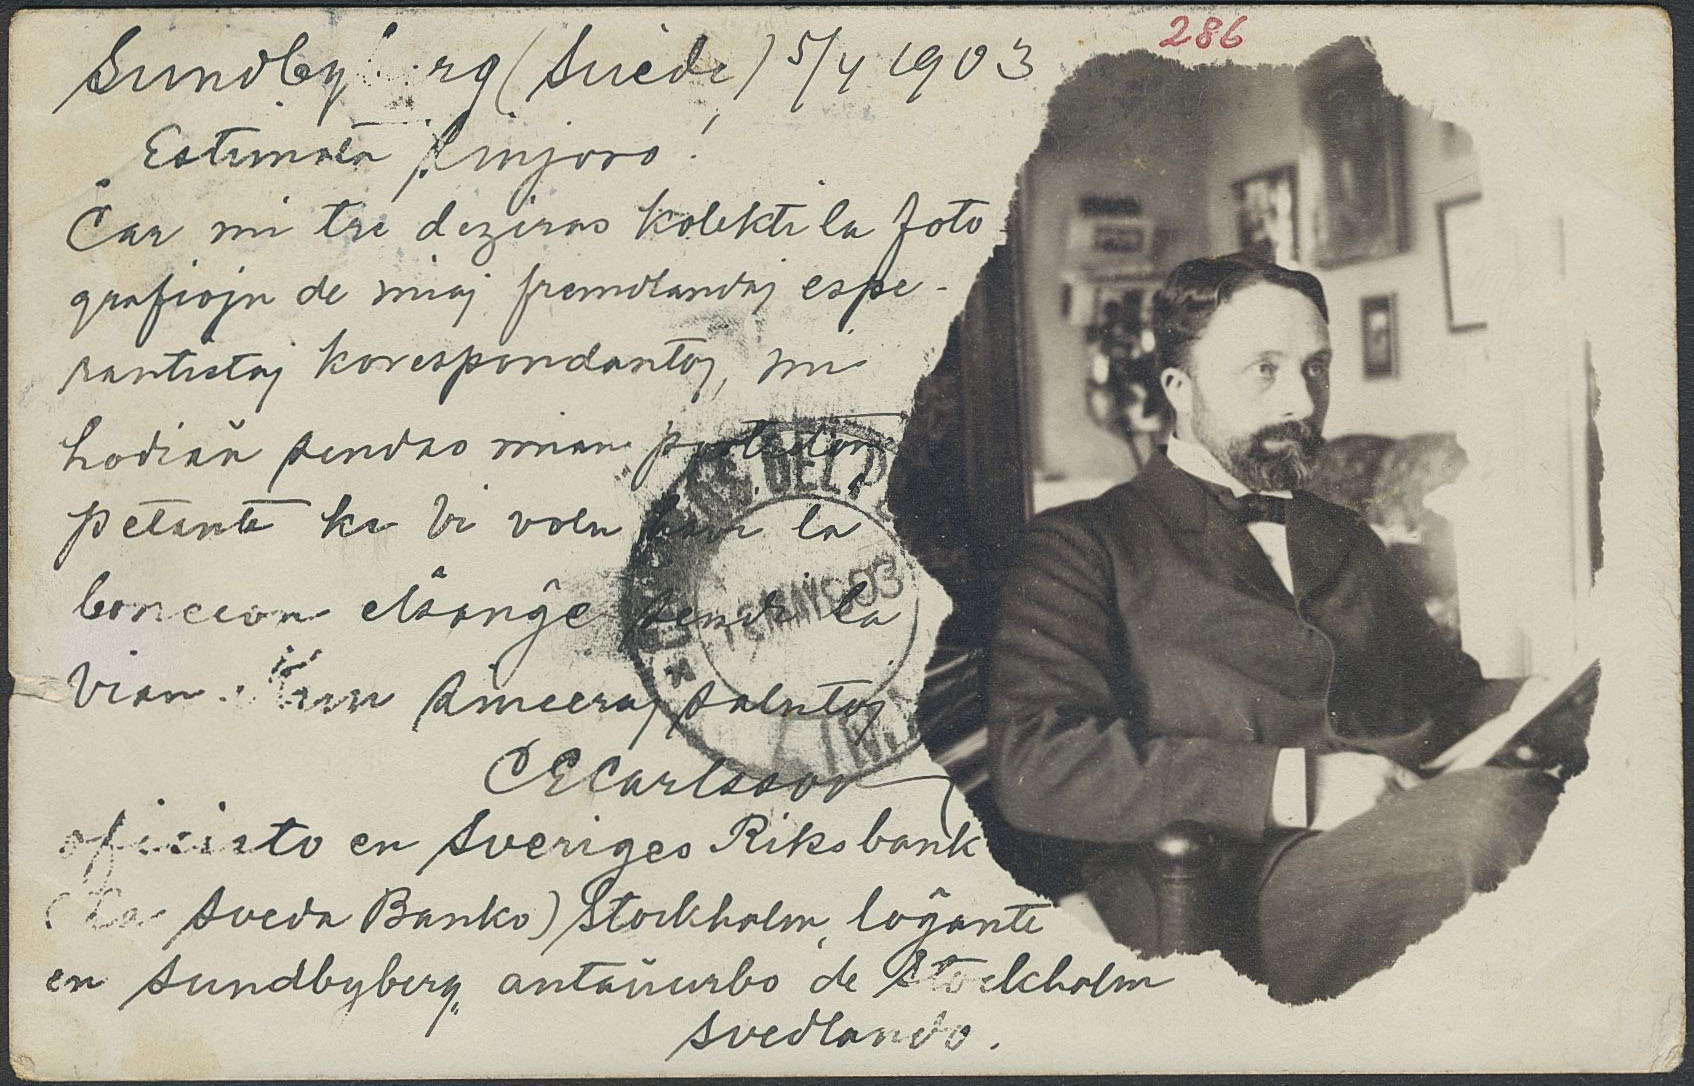 286
Sundbyberg (Suède) 5/4 1903
Estimata Sinjoro!
Ĉar mi tre deziras kolekti la foto
grafiojn de miaj fremdlandaj espe-
rantistaj korespondantoj, mi
hodiaŭ sendas mian portreton
petante ke Vi volu havi la
boncecon elŝanĝe sendi la
Vian. Kun sinceraj salutoj
C E Carlsson
oficisto en Sveriges Riksbank
(La Sveda Banko) Stockholm, loĝante
en Sundbyberg, antaŭurbo de Stockholm
Svedlando.
DEL P
MAY 903